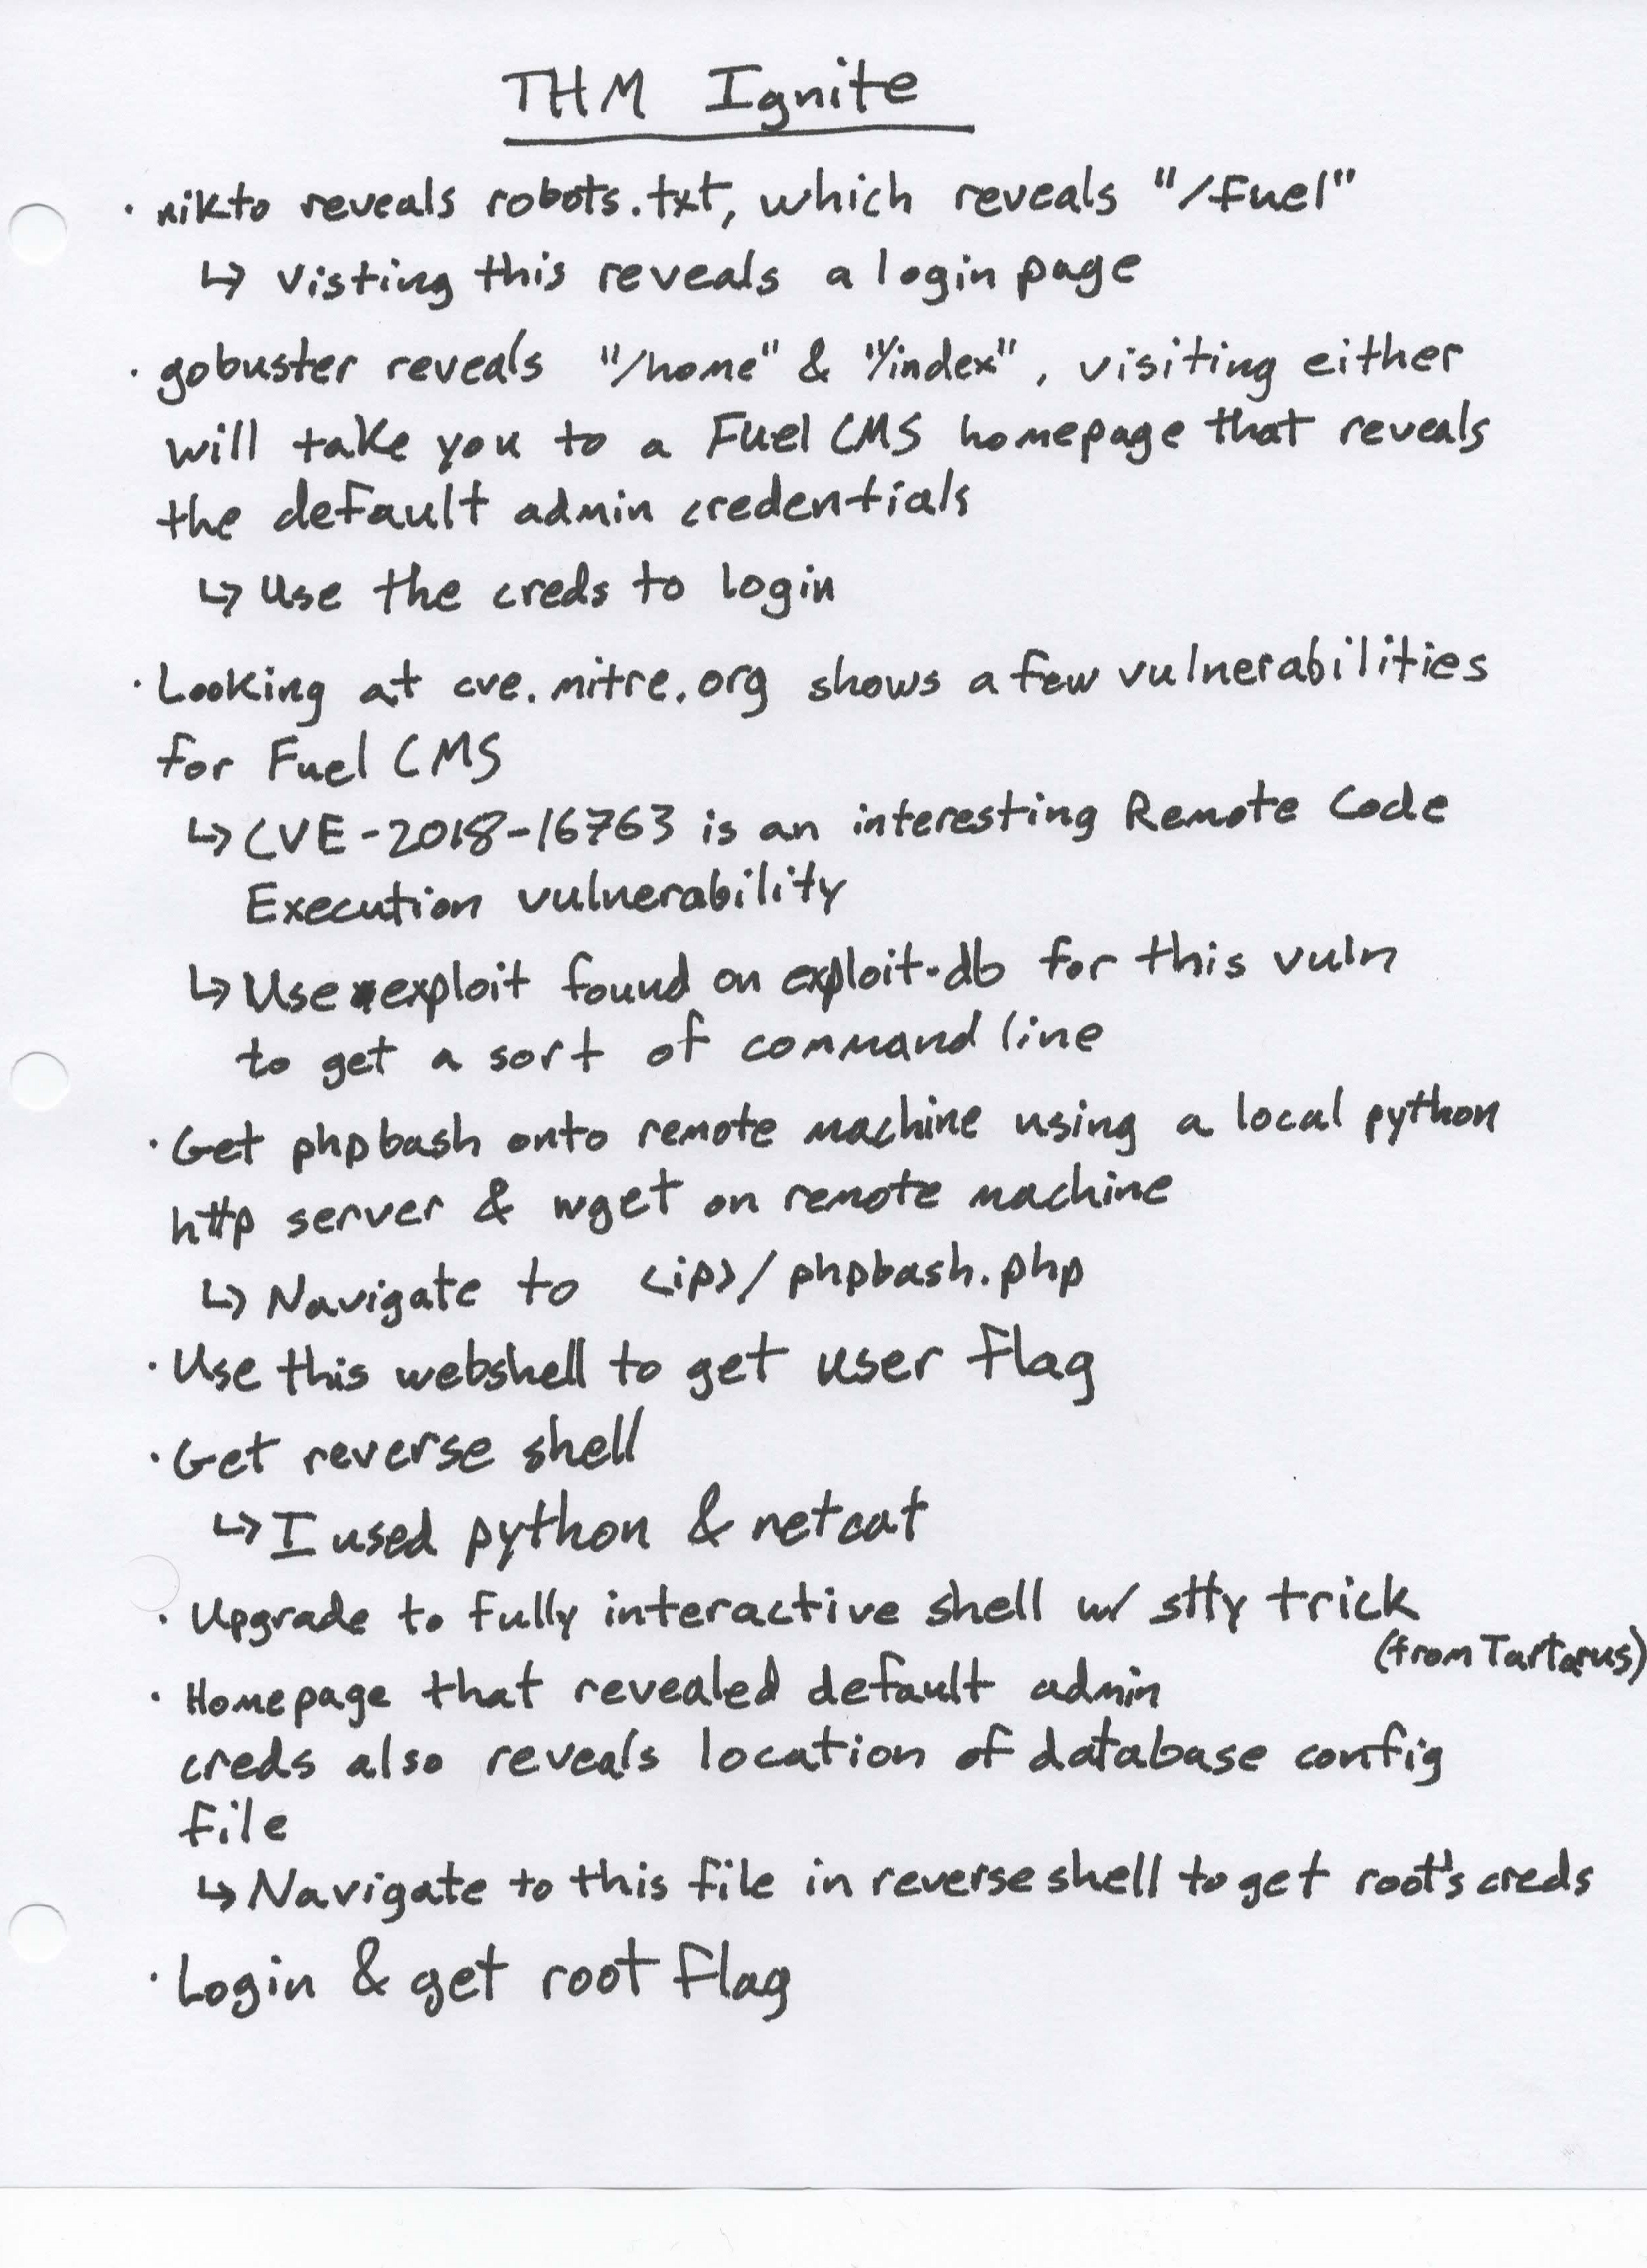 THM Ignite
· nikto reveals robots.txt, which reveals "/fuel"
↳ Visting this reveals a login page
· gobuster reveals "/home" & "/index", visiting either
will take you to a Fuel CMS homepage that reveals
the default admin credentials
↳ Use the creds to login
· Looking at cve.mitre.org shows a few vulnerabilities
for Fuel CMS
↳ CVE-2018-16763 is an interesting Remote Code
Execution vulnerability
↳ Use exploit found on exploit-db for this vuln
to get a sort of command line
· Get phpbash onto remote machine using a local python
http server & wget on remote machine
↳ Navigate to <ip>/phpbash.php
· Use this webshell to get user flag
· Get reverse shell
↳ I used python & netcat
· Upgrade to fully interactive shell w/ stty trick
(from Tartarus)
· Homepage that revealed default admin
creds also reveals location of database config
file
↳ Navigate to this file in reverse shell to get root's creds
· Login & get root flag